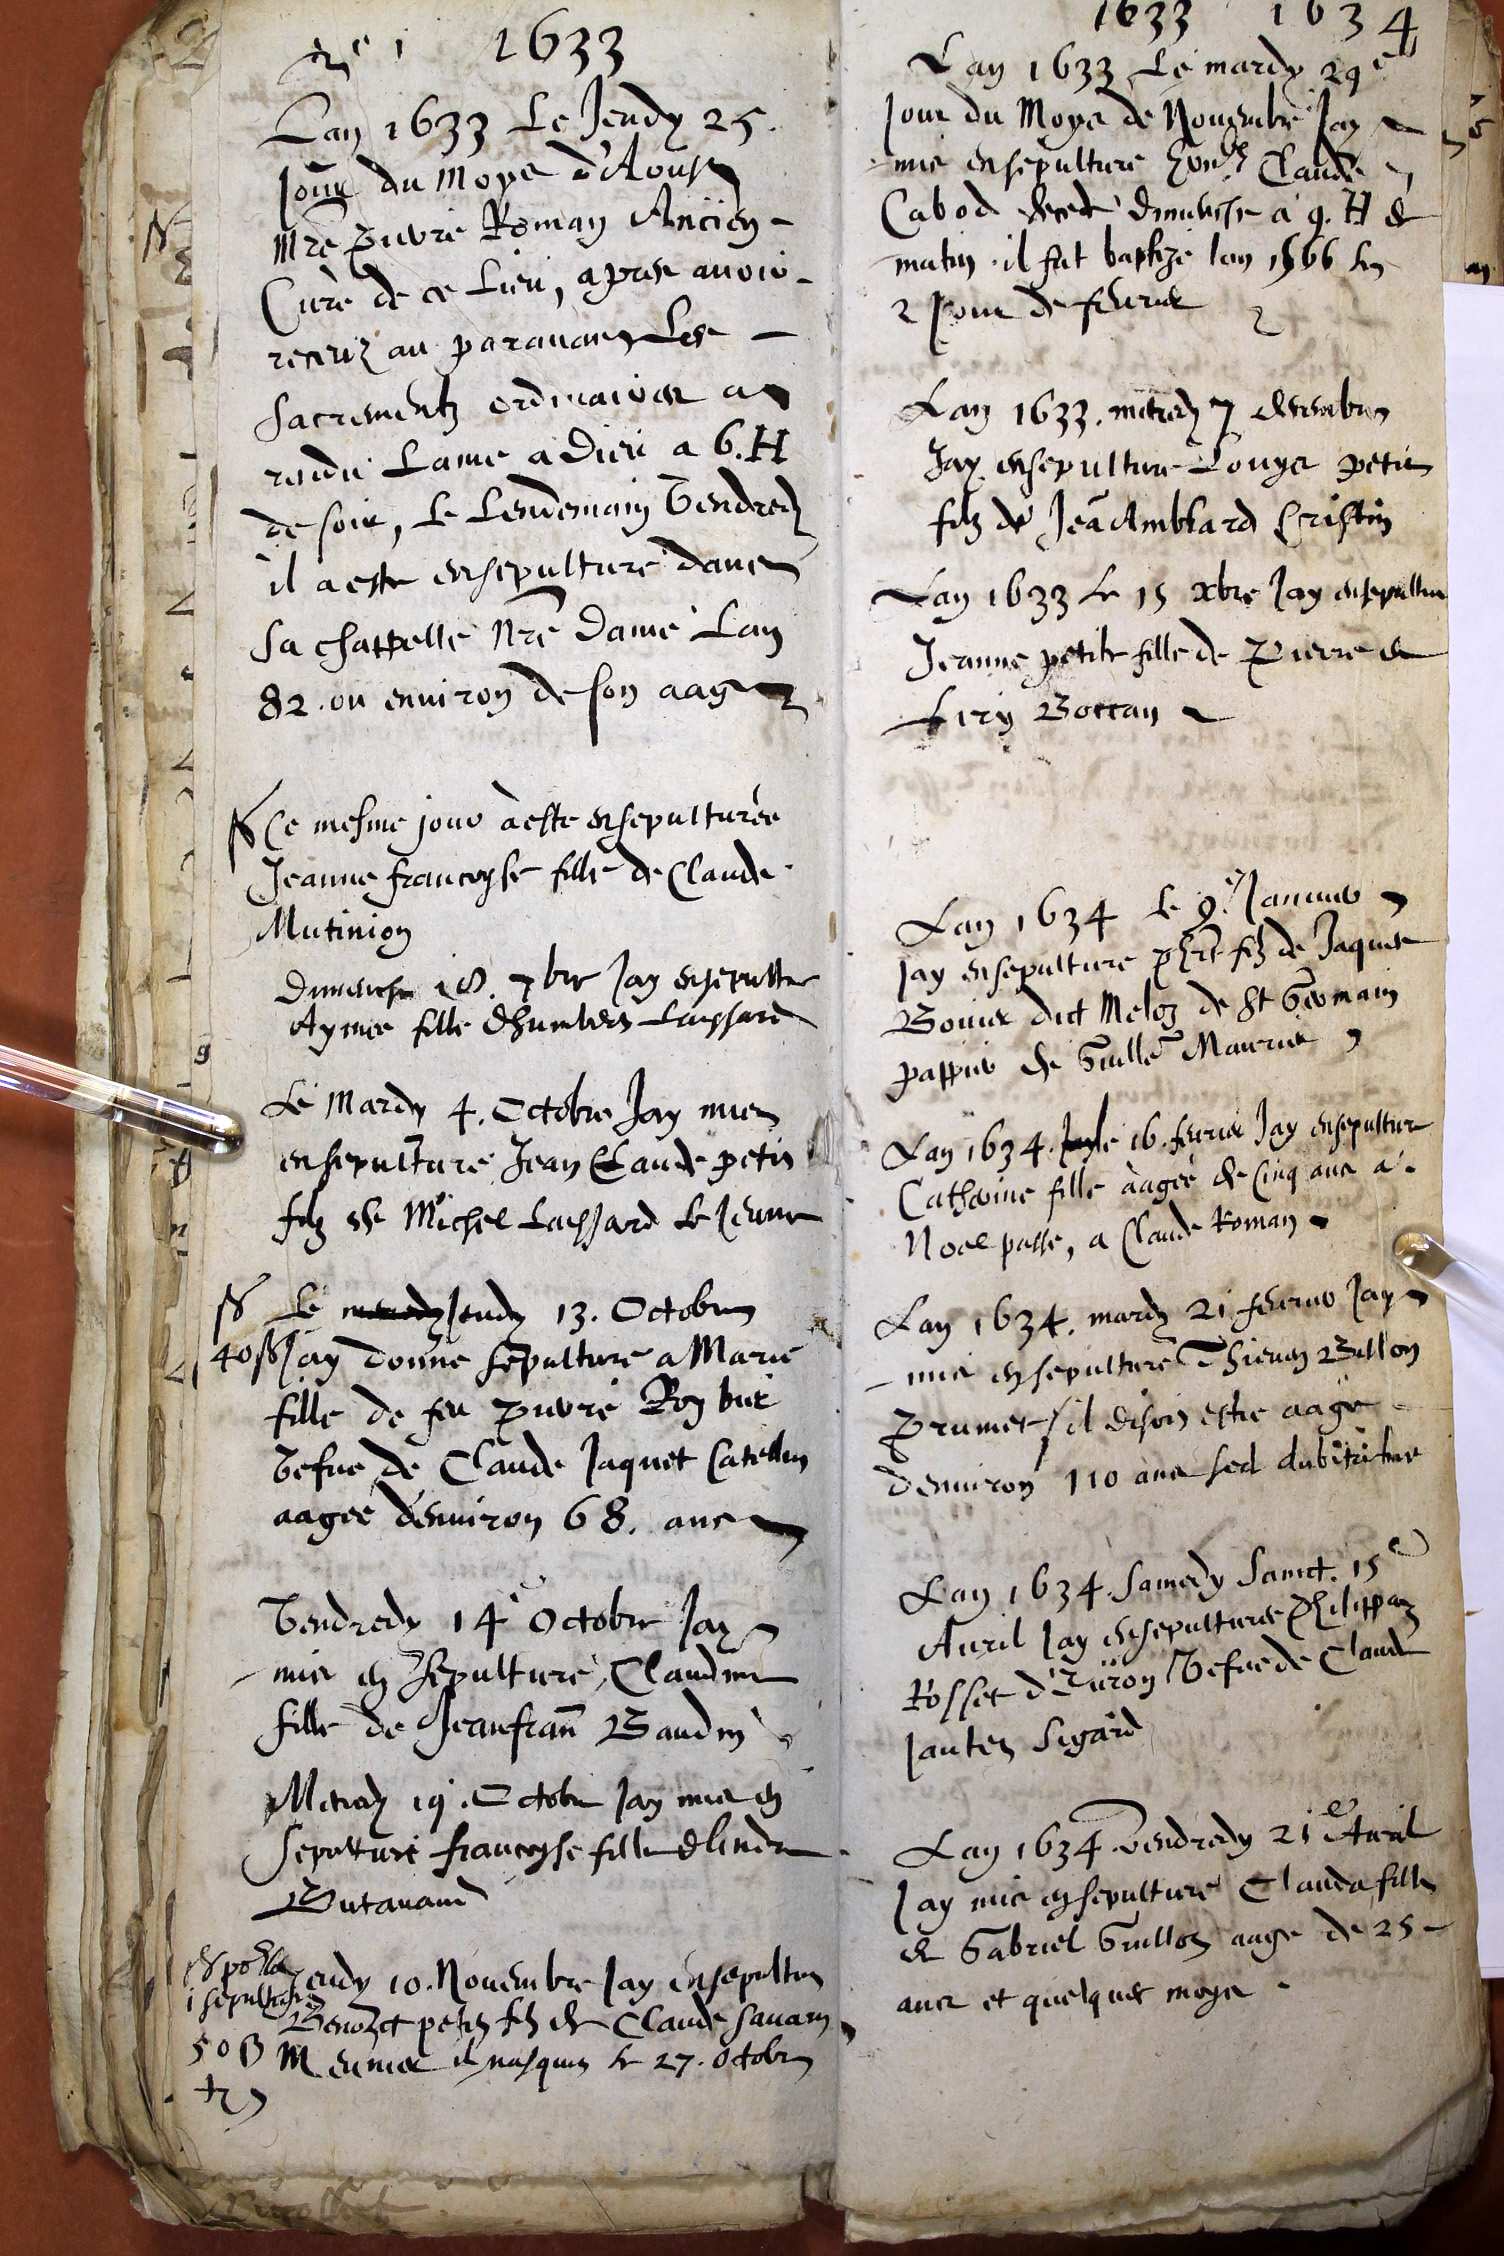 1633
Lan 1633 Le Jeudy 25
Jour du Moys d'Aoust
Mre Pierre Roman Ancien
Curé de ce Lieu, apres avoir
receuz au paravant Les
sacrementz ordinaires a
rendu Lame a Dieu a 6. H
de soir, Le Lendemain Vendredy
il a este ensepulturé dans
sa chappelle Nre Dame Lan
82. ou environ de son aage
Ce mesme jour à este ensepulturée
Jeanne francoyse fille de Claude
Mutinion
Dimenche 18. 7bre Jay ensepulture
Aymee fille dhumbert Layssard
Le Mardy 4. Octobre Jay mis
ensepulture Jean Claude petit
filz de Michel Layssard Le Jeune
Le Jeudy 13. Octobre
40ß Jay donné sepulture a Marie
fille de feu Pierre Roy
Vefve de Claude Jaquet Catellin
aagee d'environ 68. ans
Vendredy 14e Octobre Jay
mis en sepulture, Claudine
fille de Jeanfran Baudin
Mecredy 19. Octobre Jay mis en
sepulture francoyse fille
Butavand
1 sepulture
Jeudy 10. Novembre Jay ensepulture
Benoict petit filz de Claude Savarin
50ß
Meunier il nasquit le 27. Octobre
1633 1634
Lan 1633 Le mardy 29e
Jour du Moys de Novembre Jay
mis ensepulture Claude
Cabod decedé dimenche a 9. H de
matin. il fut baptizé lan 1566 le
2 Jour de fevrier
Lan 1633. mecredy 7 decembre
Jay ensepulture Louys petit
filz de Jean Amblard Cristin
Lan 1633 le 15 xbre Jay ensepulture
Jeanne petite fille de Pierre de
Liry Boccan
Lan 1634 le 9e Janvier
Jay ensepulture filz de Jaques
Bovier dict Meloz de St Germain
pappier de Maurier
Lan 1634. le 16. fevrier Jay ensepulture
Catherine fille àagée de cinq ans a
Noel passe, a Claude Roman
Lan 1634. mardy 21 fevrier Jay
mis ensepulture Thieven Billon
Prumet / il disoit estre aagé
denviron 110 ans sed dubitatur
Lan 1634. Samedy Sainct. 15e
Avril Jay ensepulture Philippaz
Rosset Vefve de Claude
Sigard
Lan 1634. Vendredy 21e Avril
Jay mis ensepulture Clauda fille
de Gabriel Guilloz aage de 25
ans et quelques moys